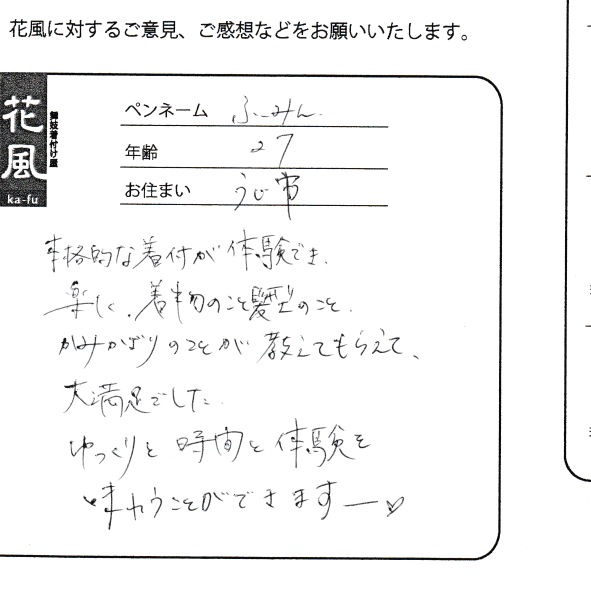 花風に対するご意見、ご感想などをお願いいたします。
花風
舞妓着付け屋
ka-fu
ペンネーム ふーみん
年齢 27
お住まい うじ市
本格的な着付が体験でき、
楽しく、着物のこと髪型のこと、
かみかざりのことが教えてもらえて、
大満足でした。
ゆっくりと時間と体験を
味わうことができます—♡